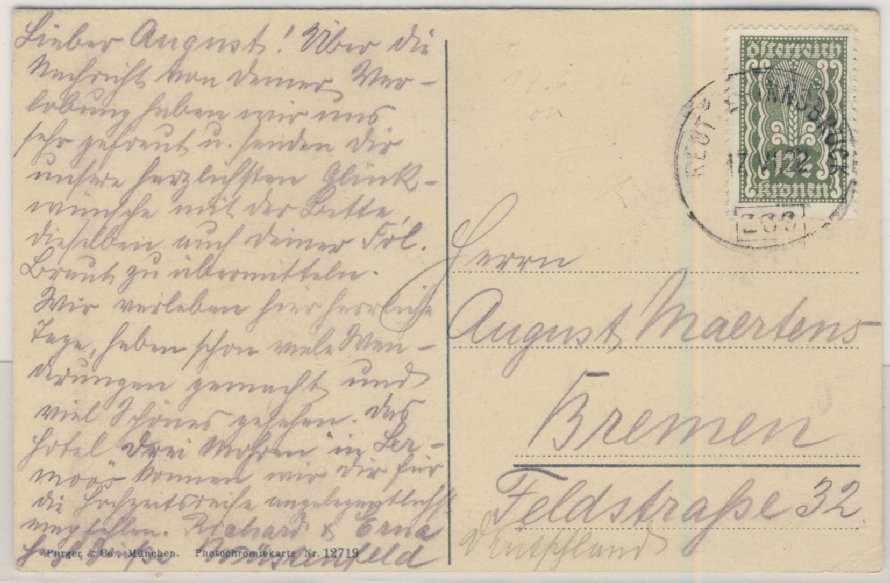 Lieber August! Über die
Nachricht von Deiner Ver-
lobung haben wir uns
sehr gefreut u. senden Dir
unsere herzlichsten Glück-
wünsche mit der Bitte,
dieselben auch Deiner Frl.
Braut zu übermitteln.
Wir verleben hier herrliche
Tage, haben schon viele Wan-
derungen gemacht und
viel Schönes gesehen. Das
Hotel Drei Mohren in Ler-
moos können wir Dir für
die Hochzeitsreise angelegentlichst
empfehlen. Richard & Erna
Purger & Co., München. Photochromiekarte Nr. 12719
österreich
kronen
INNSBRUCK
Herrn
August Maertens
Bremen
Feldstraße 32
Deutschland